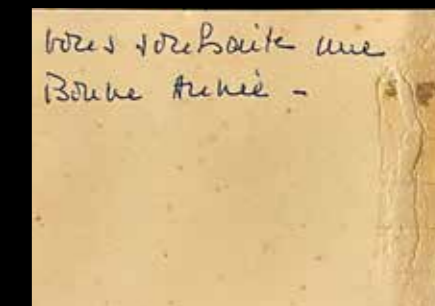 vous souhaite une
Bonne Année -